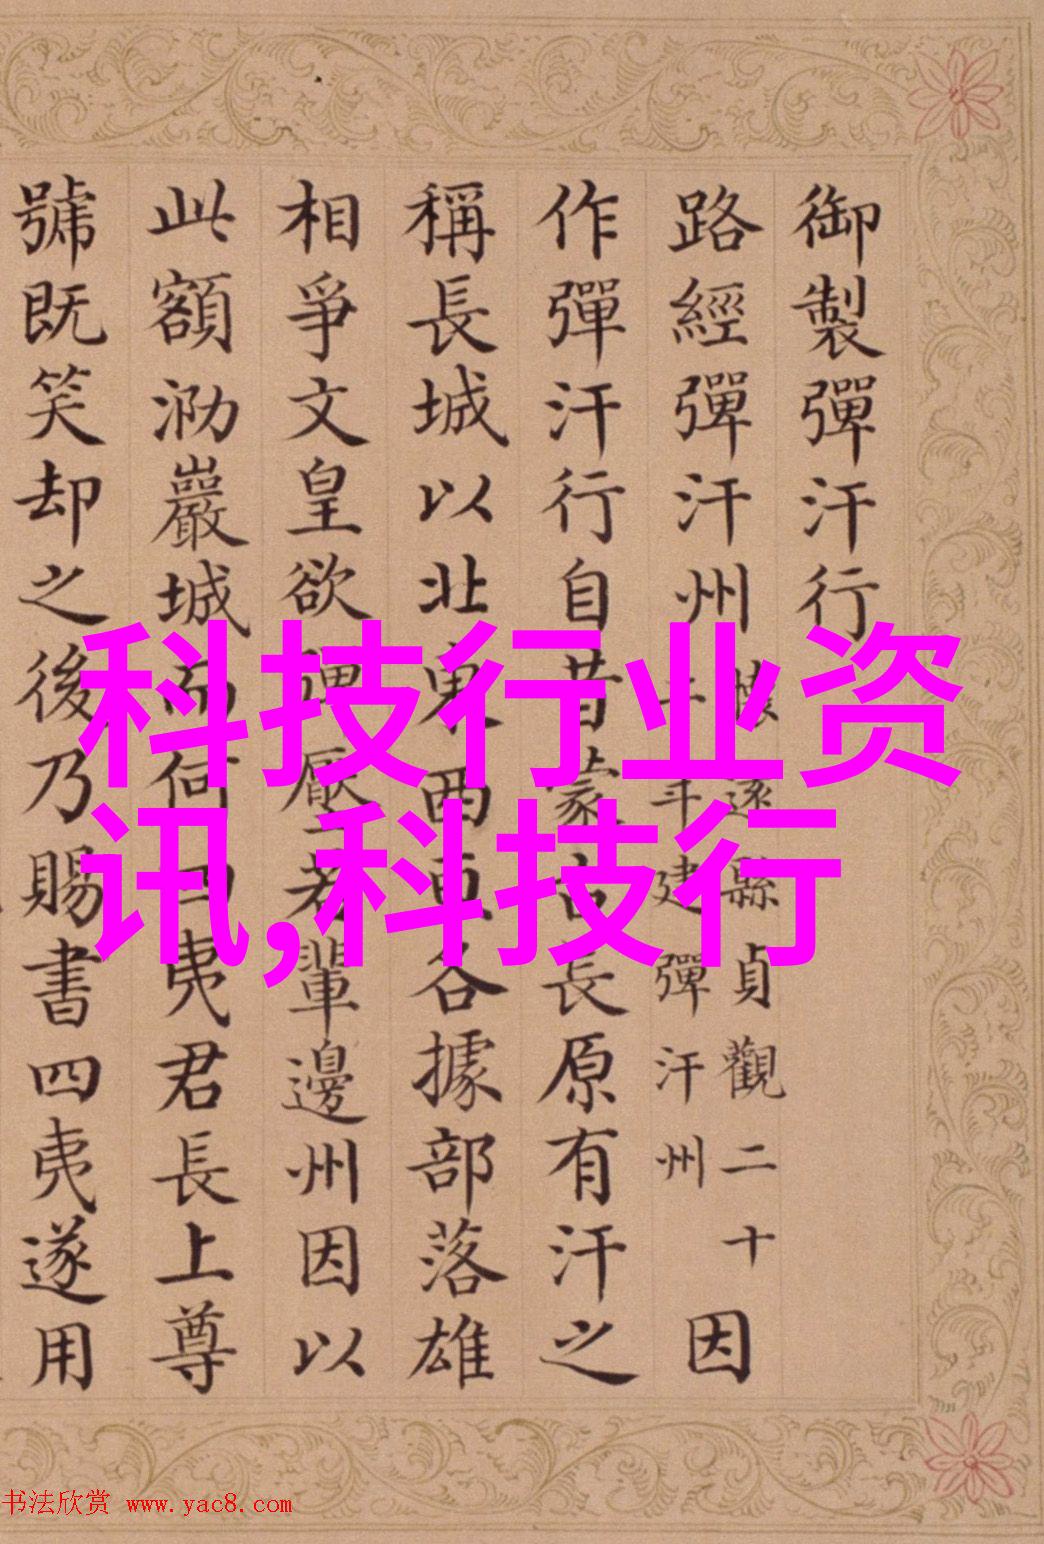 御製彈汗行
路經彈汗州
縣貞觀二十
年建彈汗州
因
作彈汗行自昔蒙古長原有汗之
稱長城以北東西亙各據部落雄
相爭文皇欲厭若輩邊州因以
此額泐巖城而何四夷君長上尊
號既笑却之後乃賜書四夷遂用
科技行业资
讯,科技行
书法欣赏 www.yac8.com